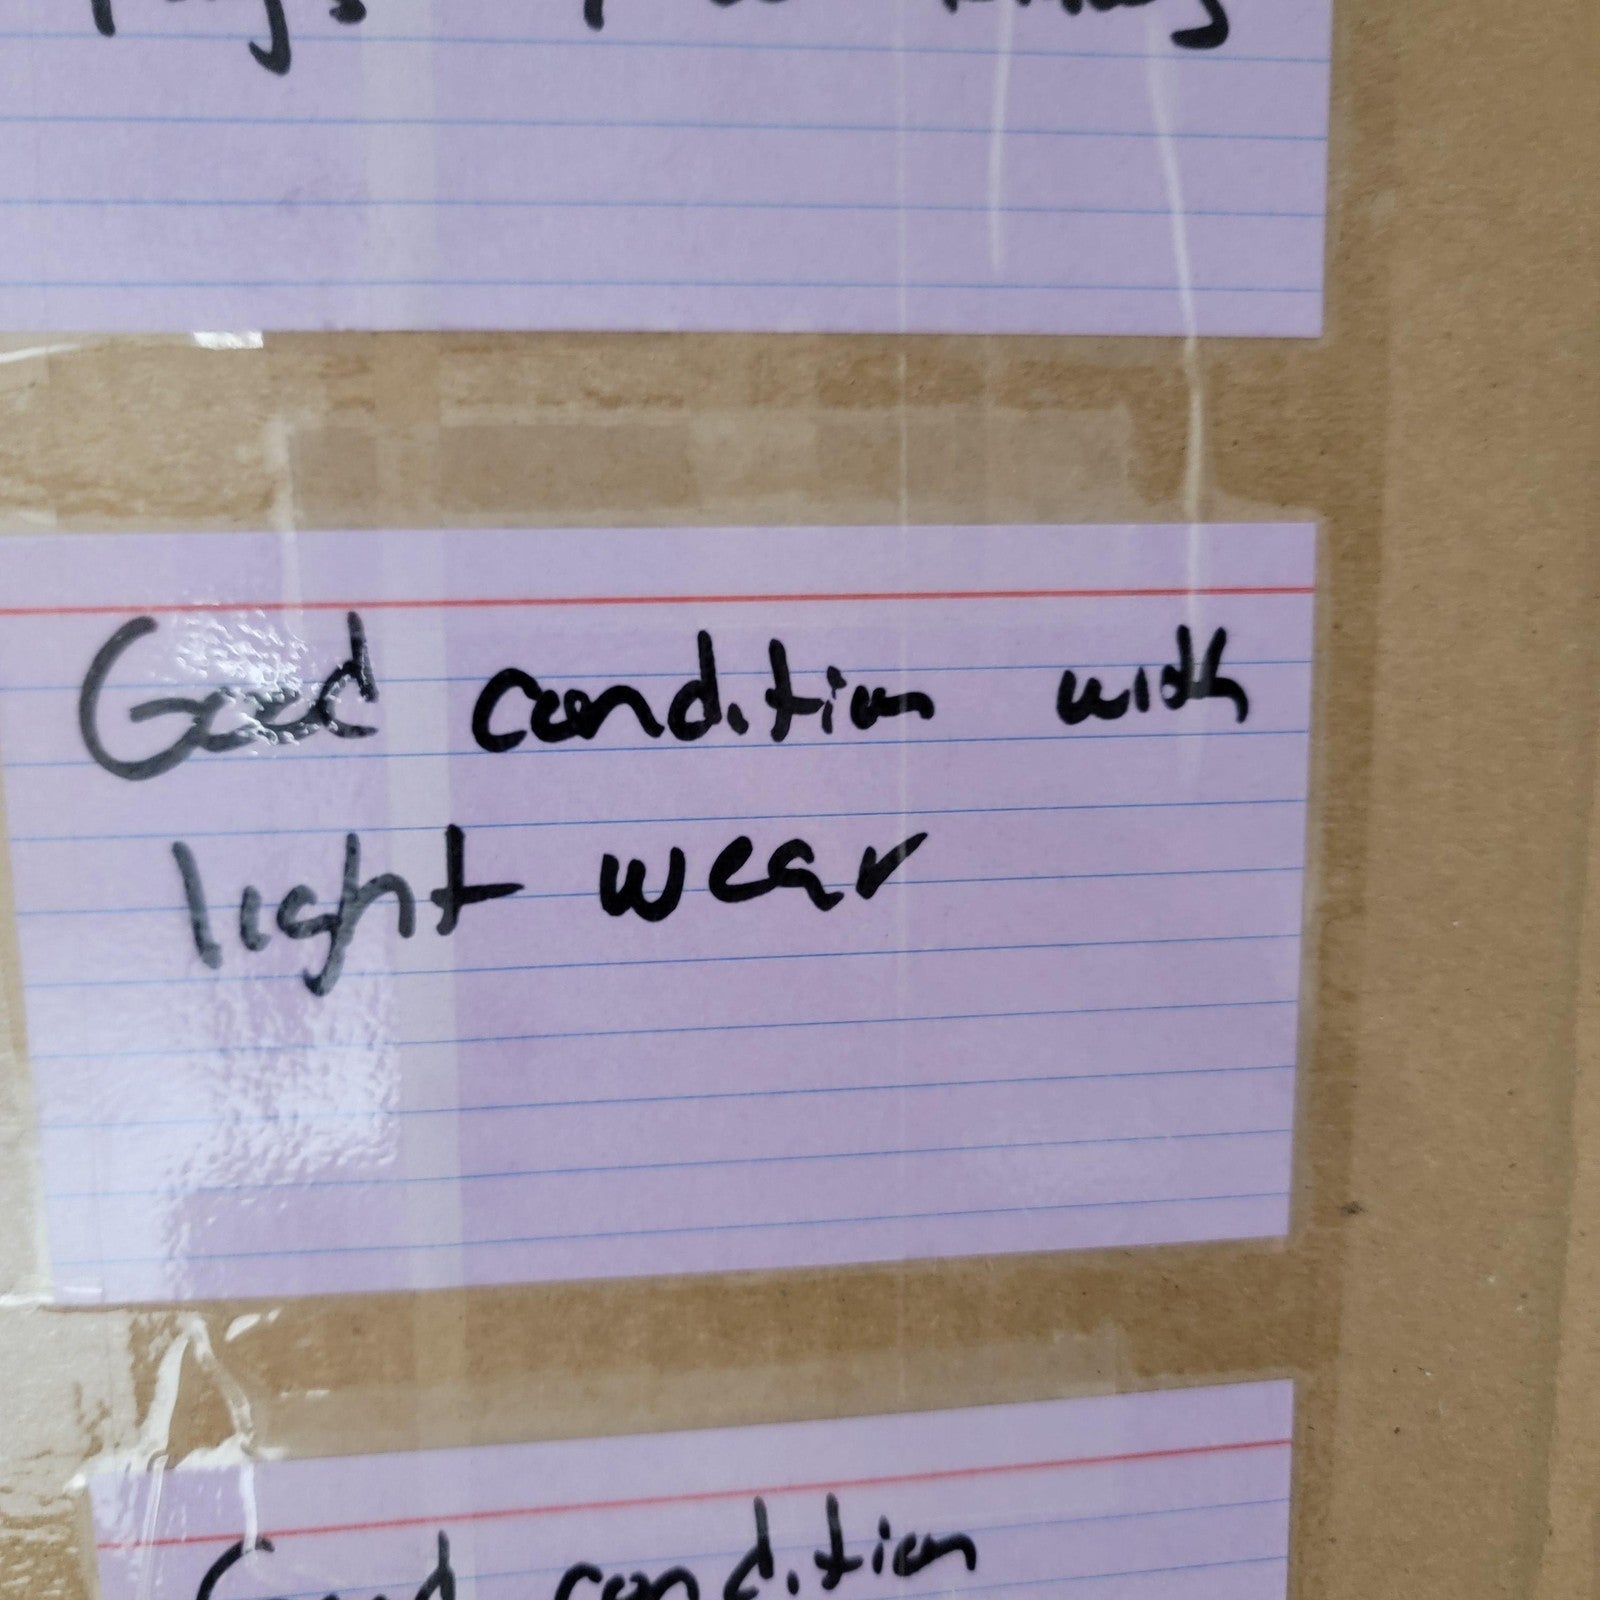 Good condition with
light wear
Good condition